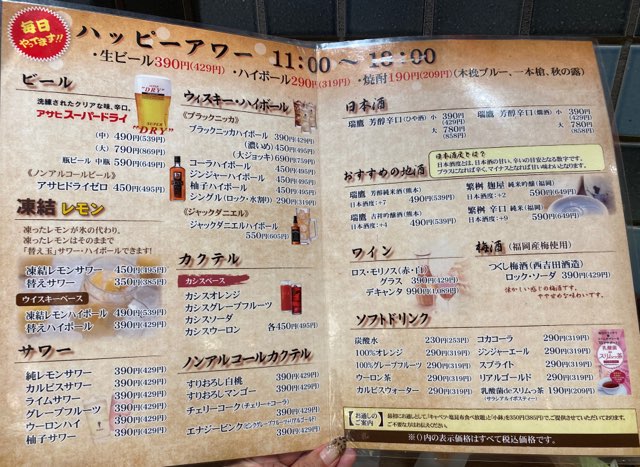 毎日
やってます!!
ハッピーアワー 11:00～18:00
・生ビール390円(429円) ・ハイボール290円(319円) ・焼酎190円(209円)(木挽ブルー、一本槍、秋の露)
ビール
洗練されたクリアな味、辛口。
アサヒスーパードライ
(中) 490円(539円)
(大) 790円(869円)
瓶ビール 中瓶 590円(649円)
《ノンアルコールビール》
アサヒドライゼロ 450円(495円)
凍結レモン
凍ったレモンが氷の代わり。
凍ったレモンはそのままで
「替え玉」サワー・ハイボールできます!
凍結レモンサワー 450円(495円)
替えサワー 350円(385円)
ウイスキーベース
凍結レモンハイボール 490円(539円)
替えハイボール 390円(429円)
サワー
純レモンサワー 390円(429円)
カルピスサワー 390円(429円)
ライムサワー 390円(429円)
グレープフルーツ 390円(429円)
ウーロンハイ 390円(429円)
柚子サワー 390円(429円)
ウィスキー・ハイボール
《ブラックニッカ》
ブラックニッカハイボール 390円(429円)
(濃いめ) 450円(495円)
(大ジョッキ) 690円(759円)
コーラハイボール 450円(495円)
ジンジャーハイボール 450円(495円)
柚子ハイボール 450円(495円)
シングル(ロック・水割り) 290円(319円)
《ジャックダニエル》
ジャックダニエルハイボール
550円(605円)
カクテル
カシスベース
カシスオレンジ
カシスグレープフルーツ
カシスソーダ
カシスウーロン 各450円(495円)
ノンアルコールカクテル
すりおろし白桃 390円(429円)
すりおろしマンゴー 390円(429円)
チェリーコーク(チェリー+コーラ)
390円(429円)
エナジーピンク(ピンクグレープフルーツ+リアルゴールド)
390円(429円)
日本酒
瑞鷹 芳醇辛口(ひや酒) 小 390円(429円)
大 780円(858円)
瑞鷹 芳醇辛口(燗酒) 小 390円(429円)
大 780円(858円)
日本酒度とは?
日本酒度とは、日本酒の甘い、辛いの目安となる数字です。
プラスになれば辛く、マイナスとなれば甘い味わいとなります。
おすすめの地酒
瑞鷹 芳醇純米酒(熊本)
日本酒度:+2 490円(539円)
瑞鷹 吉祥吟醸酒(熊本)
日本酒度:+4 490円(539円)
繁桝 麹屋 純米吟醸(福岡)
日本酒度:+2 590円(649円)
繁桝 辛口 純米酒(福岡)
日本酒度:+7 590円(649円)
ワイン
ロス・モリノス(赤・白)
グラス 390円(429円)
デキャンタ 990円(1,089円)
梅酒 (福岡産梅使用)
つくし梅酒(西吉田酒造)
ロック・ソーダ 390円(429円)
懐かしい感じの梅酒です。
やや甘めな味わいです。
ソフトドリンク
炭酸水 230円(253円)
100%オレンジ 290円(319円)
100%グレープフルーツ 290円(319円)
ウーロン茶 290円(319円)
カルピスウォーター 290円(319円)
コカコーラ 290円(319円)
ジンジャーエール 290円(319円)
スプライト 290円(319円)
リアルゴールド 290円(319円)
乳酸菌deスリムっ茶 190円(209円)
(サラシアルイボスティー)
お通しのご案内
最初にお通しとして、「キャベツ・塩昆布食べ放題」と「小鉢」を350円(385円)でご提供させていただいております。
ご不要な方はお伝えください。
※( )内の表示価格はすべて税込価格です。